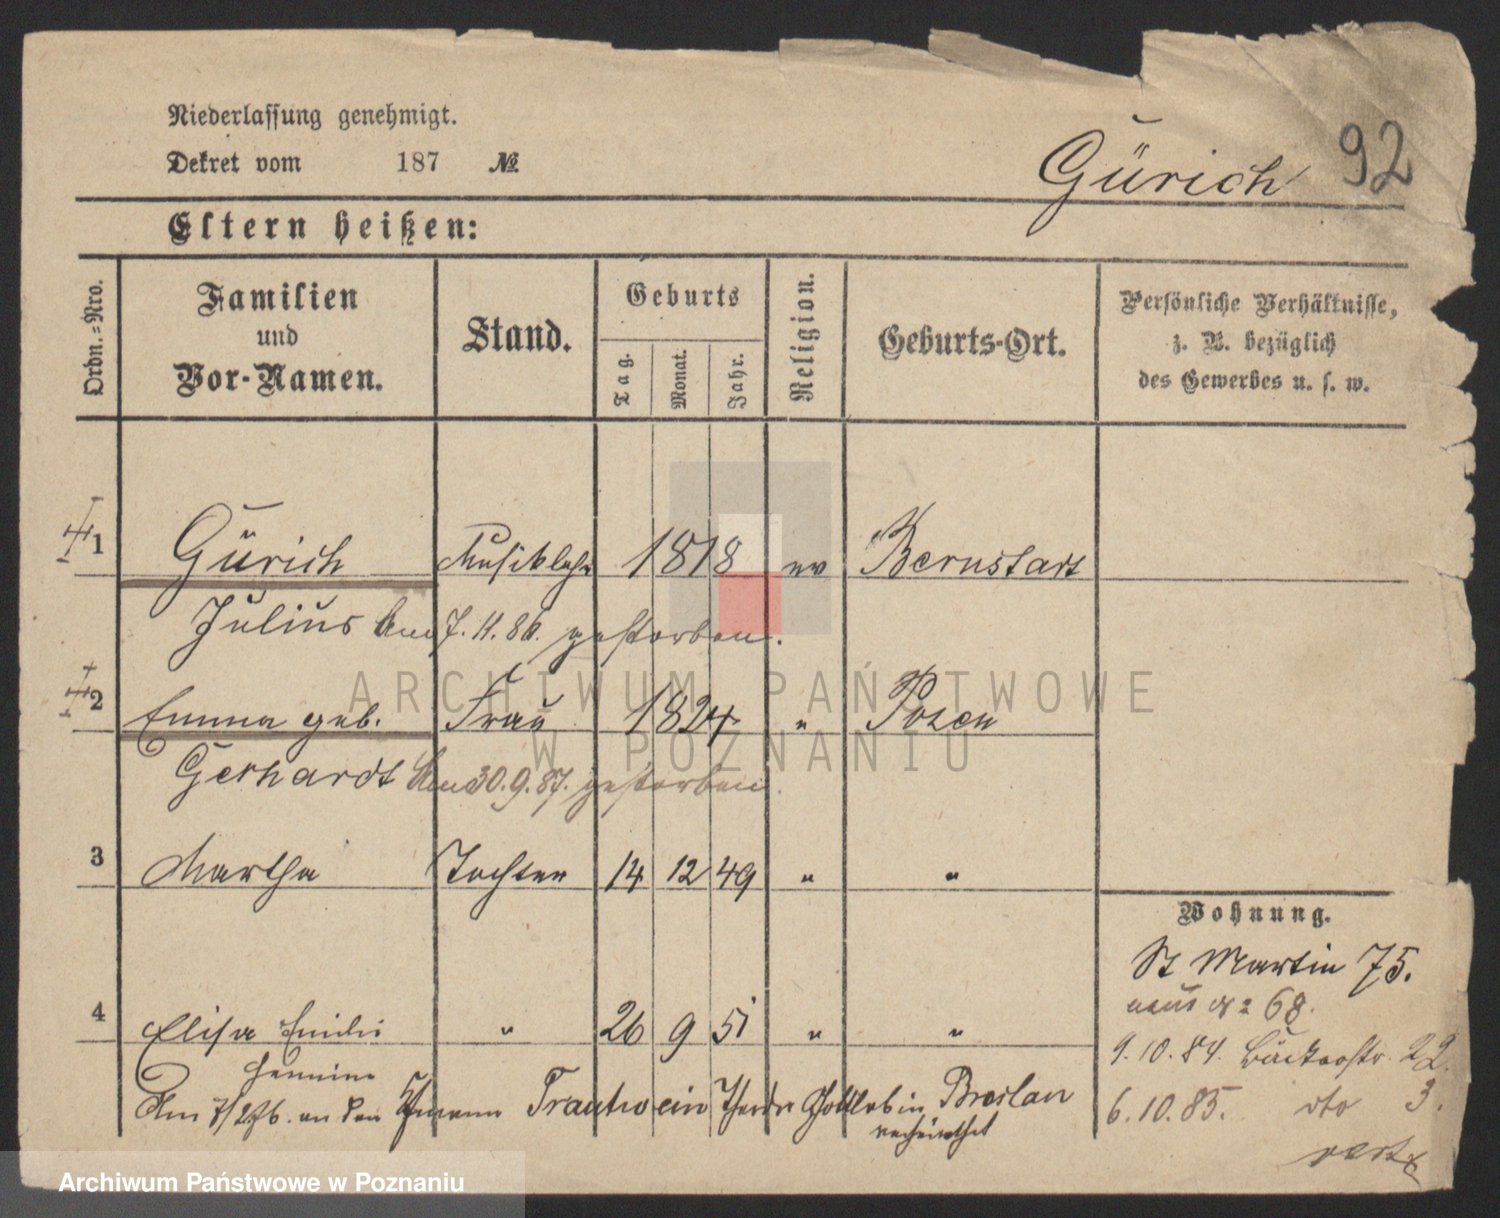 Niederlassung genehmigt.
Dekret vom 187 №
Gürich 92
Eltern heißen:
Ordn.-Nro.
Familien und Vor-Namen.
Stand.
Geburts
Tag.
Monat.
Jahr.
Religion.
Geburts-Ort.
Persönliche Verhältnisse,
z. B. bezüglich
des Gewerbes u. s. w.
1 Gürich Musiklehr 1818 ev Bernstadt
Julius Am 7.11.86. gestorben.
2 Emma geb. Frau 1824 " Posen
Gerhardt Am 30.9.87. gestorben.
3 Martha Tochter 14 12 49 " "
4 Elisa Emilie " 26 9 51 " "
Hermine
Am 7/2 76. an den Trautwein Gottlieb in Breslau
verheirathet
Wohnung.
St Martin 75.
neue № 68.
9.10.84. Bäckerstr. 22.
6.10.85. dto 3.
ARCHIWUM PAŃSTWOWE
W POZNANIU
Archiwum Państwowe w Poznaniu